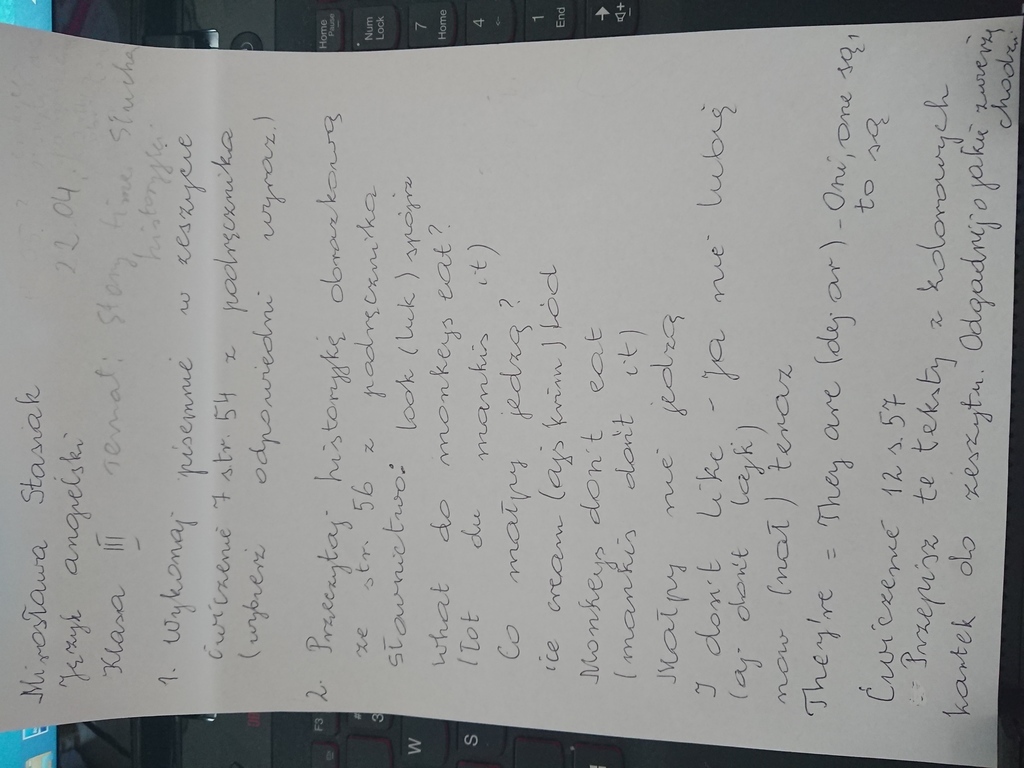 Mirosława Stasiak
Język angielski 22.04.
Klasa III temat: Story time słucha
historyjki
1. Wykonaj pisemnie w zeszycie
ćwiczenie 7 str. 54 z podręcznika
(wybierz odpowiedni wyraz.)
2. Przeczytaj historyjkę obrazkową
ze str. 56 z podręcznika
Słownictwo: look (luk) spójrz
What do monkeys eat?
(Łot du mankis it)
Co małpy jedzą?
ice cream (ajs krim) lód
Monkeys don't eat
(mankis dońt it)
Małpy nie jedzą
I don't like - ja nie lubię
(aj dońt lajk)
now (nał) teraz
They're = They are (dej ar) - Oni, one są,
to są
Ćwiczenie 12 s. 57
Przepisz te teksty z kolorowych
kartek do zeszytu. Odgadnij o jakie zwierzę
chodzi.
Home
Pause
Num
Lock
7
Home
4
1
End
F3
#
3
W
S